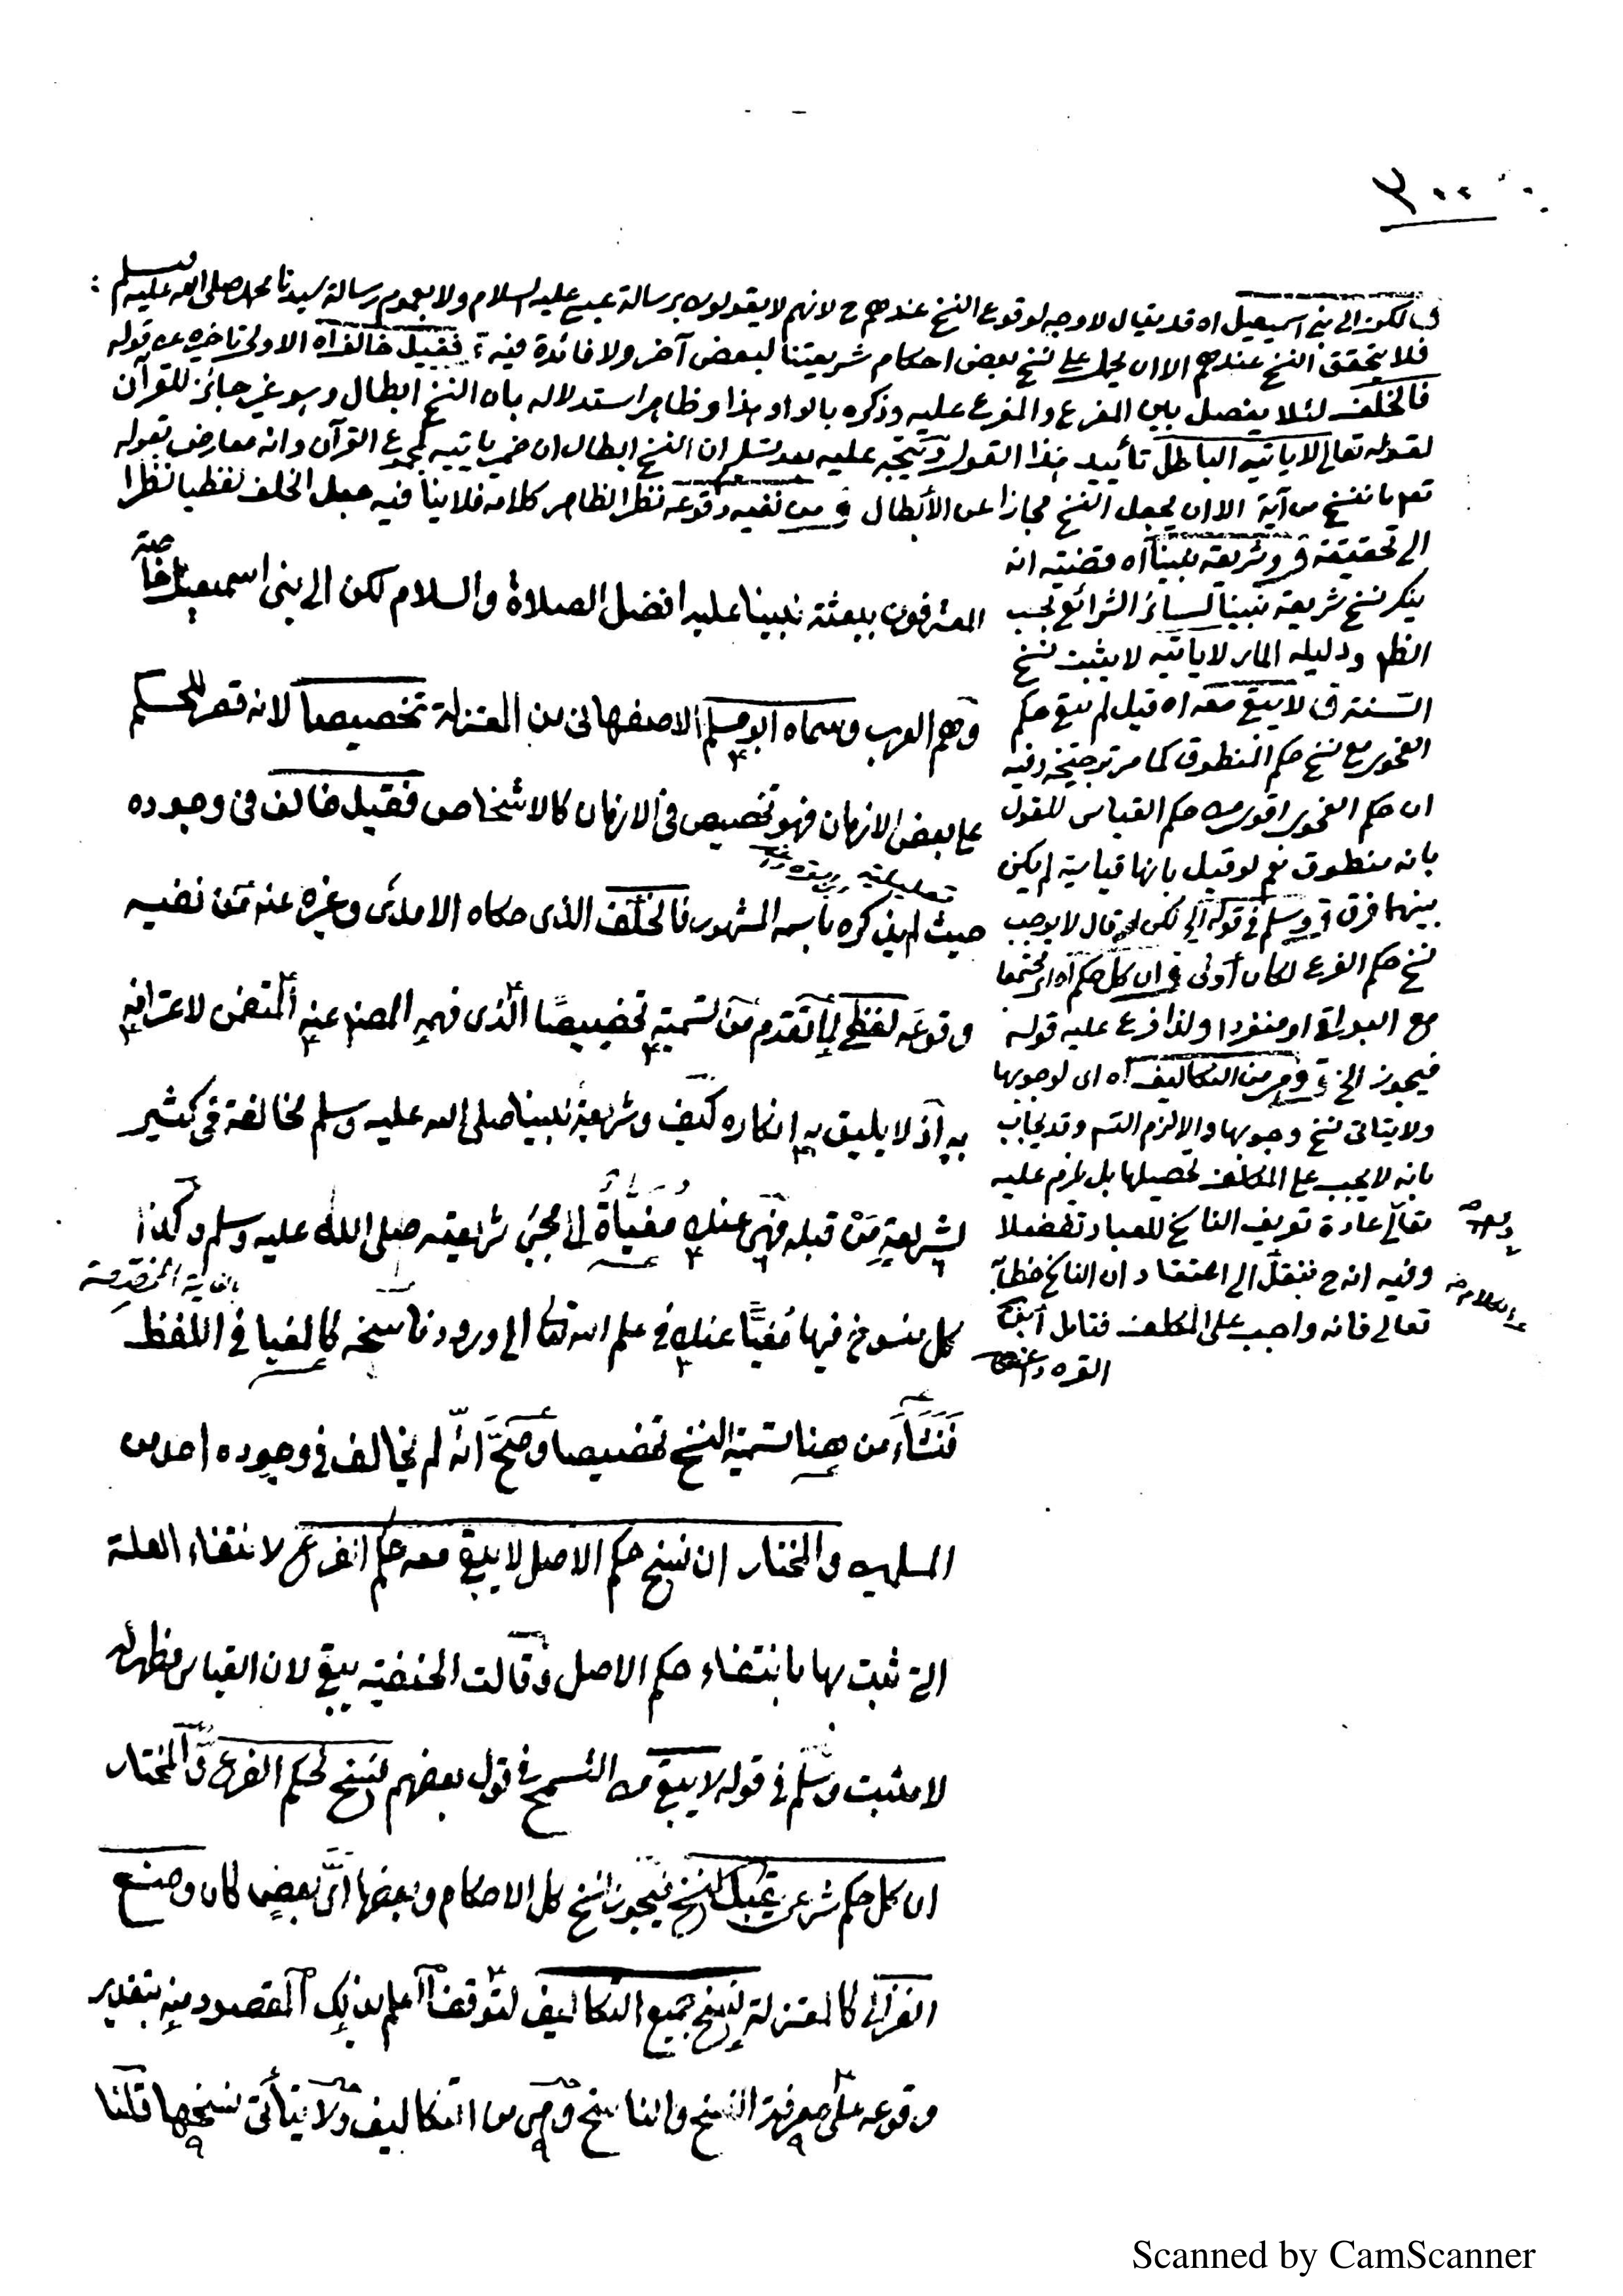 ٣٠٠
لكن الى بني اسمعيل اه قد يقال لا وجه لوقوع النسخ عندهم ح لانهم لا يقولون برسالة عيسى عليه السلام ولا بعموم رسالة سيدنا محمد صلى الله عليه وسلم
فلا يتحقق النسخ عندهم الا ان يحمل على نسخ بعض احكام شريعتنا لبعض آخر ولا فائدة فيه فقيل خالف اه الاولى تاخيره عن قوله
فالخلف لئلا يفصل بين المفرع والمفرع عليه وذكره بالواو هذا وظاهر استدلاله بان النسخ ابطال وهو غير جائز للقرآن
لقوله تعالى لا ياتيه الباطل تأييد هذا القول ويتجه عليه بعد تسليم ان النسخ ابطال ان ضمير ياتيه لمجموع القرآن وانه معارض بقوله
تعم ما ننسخ من آية الا ان يجعل النسخ مجازا عن الأبطال من نفيه وقوعه نظرا لظاهر كلامه فلا ينافيه جعل الخلف لفظيا نظرا
الى تحقيقه وشريعة نبينا اه قضيته انه
ينكر نسخ شريعة نبينا لسائر الشرائع بحسب
الظاهر ودليله المار لا ياتيه لا يثبت نسخ
السنة لا يبقى معه اه قيل لم يبق حكم
الفحوى مع نسخ حكم المنطوق كما مر ترجيحه وفيه
ان حكم الفحوى اقوى من حكم القياس للقول
بانه منطوق نعم لو قيل بانها قياسية لم يكن
بينهما فرق وسلم في قوله اه لكن لو قال لا يوجب
نسخ حكم الفرع لكان أولى ان كل حكم اه اى مجتمعا
مع البواقي او منفردا ولذا فرع عليه قوله
فيجوز الخ وهى من التكاليف اه اى لوجوبها
ولا يتاتى نسخ وجوبها والا لزم التسلسل وقد يجاب
بانه لا يجب على المكلف تحصيلها بل يلزم عليه
تعالى عادة تعريف الناسخ للعباد تفضلا
وفيه انه ح ننقل الى اعتقاد ان الناسخ خطابه
تعالى فانه واجب على المكلف فتامل
القره داغي
المعترفون ببعثة نبينا عليه افضل الصلاة والسلام لكن الى بنى اسمعيل خاصة
وهم العرب وسماه ابو مسلم الاصفهانى من المعتزلة تخصيصا لانه قصر للحكم
على بعض الازمان فهو تخصيص فى الازمان كالاشخاص فقيل خالف فى وجوده
حيث لم يذكره باسمه المشهور فالخلف الذى حكاه الامدى وغيره عنه من نفيه
وقوعه لفظى لما تقدم من تسميته تخصيصا الذى فهمه المصنف عنه المتضمن لاعترافه
به اذ لا يليق به انكاره كيف وشريعة نبينا صلى الله عليه وسلم مخالفة فى كثير
لشريعة من قبله فهى عنده مغياة الى مجئ شريعته صلى الله عليه وسلم وكذا
كل منسوخ فيها مغيا عنده فى علم الله تعالى الى ورود ناسخه كالمغيا فى اللفظ
فنشأ من هنا تسمية النسخ تخصيصا وصح انه لم يخالف فى وجوده احد من
المسلمين والمختار ان نسخ حكم الاصل لا يبقى معه حكم الفرع لانتفاء العلة
التى ثبت بها بانتفاء حكم الاصل وقالت الحنفية يبقى لان القياس مظهر له
لا مثبت وسلم فى قوله لا يبقى من التسمح فى قول بعضهم نسخ لحكم الفرع والمختار
ان كل حكم شرعى يقبل النسخ فيجوز نسخ كل الاحكام وبعضها اى بعض كان ومنع
الغزالى كالمعتزلة نسخ جميع التكاليف لتوقف العلم بذلك المقصود منه بتقدير
وقوعه على معرفة النسخ والناسخ وهى من التكاليف ولا يتأتى نسخها قلنا
Scanned by CamScanner